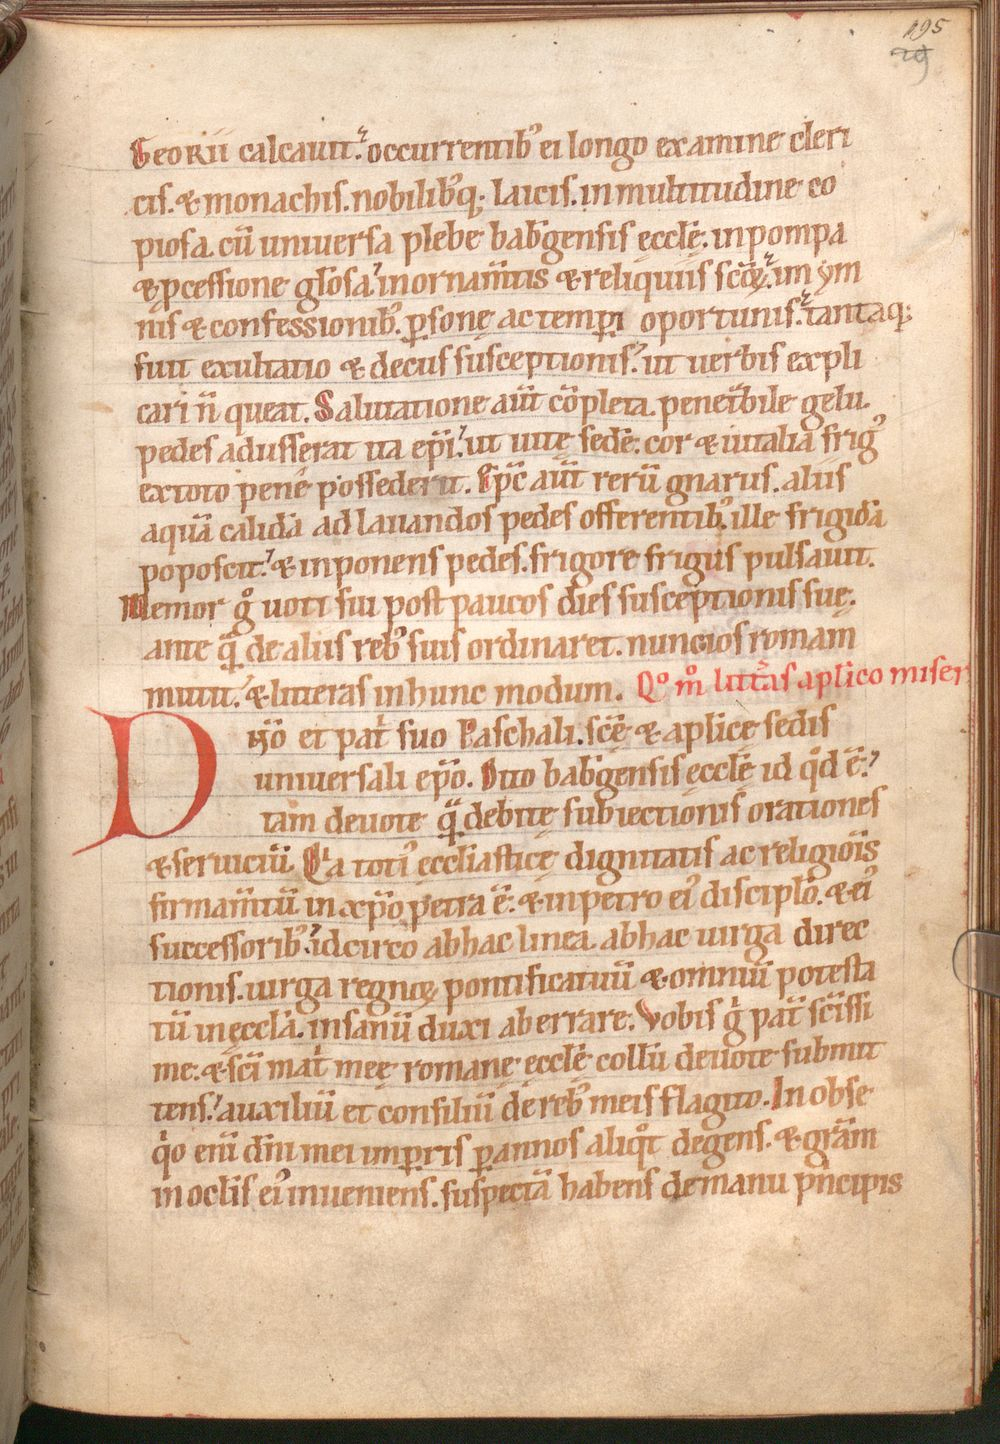 195
29
Georii calcauit. occurrentib' ei longo examine cleri
cis. & monachis. nobilib'q; laicis. in multitudine co
piosa. cū uniuersa plebe bab'gensis eccłe. in pompa
& ꝓcessione głosa. in ornam̄tis & reliquiis scōꝝ. im ym
nis & confessionib'. ꝑsonę ac temꝑi oportunis. tantaq;
fuit exultatio & decus susceptionis. ut uerbis expli
cari n̄ queat. Salutatione aūt cōpleta. penet̄bile gelu.
pedes adusserat ita ep̄i. ut uitę sedē. cor & iuitalia frig'
ex toto pene possederit. Ep̄c aūt rerū gnarus. aliis
aquā calidā ad lauandos pedes offerentib'. ille frigidā
poposcit. & inponens pedes. frigore frigus pulsauit.
Memor g° uoti sui post paucos dies susceptionis suę.
ante qͣ̄ de aliis reb' suis ordinaret. nuncios romam
misit. & litteras in hunc modum. Qͦ mͦ litt̄as aplico miser
Dn̄o et pat̄ suo Paschali. scē & aplicę sedis
uniuersali ep̄o. Otto bab'gensis ecclē id qͦd ē.
tam deuote qͣ̄ debitę subiectionis orationes
& seruiciū. Qia toti' eccliasticę dignitatis ac religiōis
firmam̄tū in xp̄o petra ē. & in petro ei' disciplo. & ei'
successorib'. idcirco ab hac linea. ab hac uirga direc
tionis. uirga regnoꝝ pontificatuū & omniū potesta
tū in ęccła. insanū duxi aberrare. Vobis gͥ pat̄ scīssi
me. & scī mat̄ meę romanę ecclę collū deuote submit
tens. auxiliū et consiliū de reb' meis flagito. In obse
qͥo enī dn̄i mei imꝑris ꝑ annos aliqͦt degens. & grām
in oclis ei' inueniens. suspectā habens de manu pͥncipis